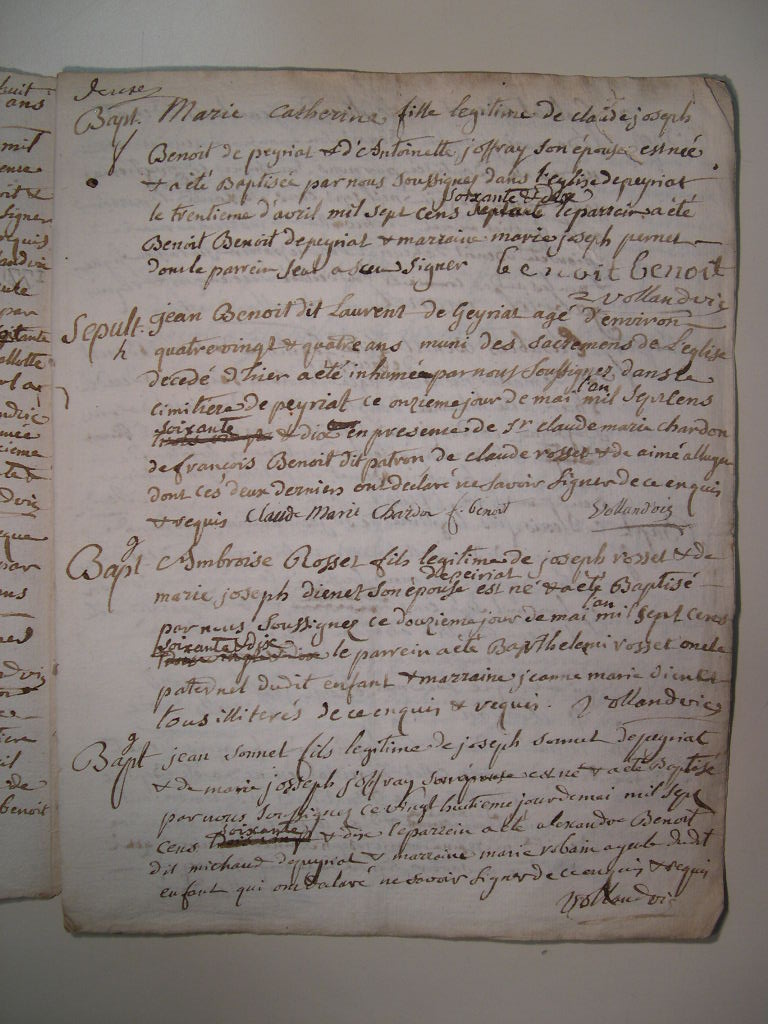 huit
ans
mil
signer
requis
benoit
Bapt. Marie Catherine fille legitime de claude joseph
Benoit de peyriat & d'Antoinette joffray son épouse est née
& a été Baptisée par nous soussignes dans l'eglise de peyriat
soixante & dix
le trentieme d'avril mil sept cens septante le parrein a été
Benoit Benoit de peyriat & marraine marie joseph pernet
dont le parrein seul a sceu signer benoit benoit
Vollandvie
Sepult. jean Benoit dit Laurent de Geyriat agé d'environ
quatre vingt & quatre ans muni des sacremens de l'eglise
decedé d'hier a été inhumée par nous soussignez dans le
l'an
cimitiere de peyriat ce onzieme jour de mai mil sept cens
soixante
& dix en presence de Sr claude marie chardon
de françois Benoit dit patron de claude rosset & de aimé
dont ces deux derniers ont declaré ne savoir signer de ce enquis
& requis Claude Marie Chardon f. benoit Vollandvie
g
Bapt Ambroise Rosset fils legitime de joseph rosset & de
de peiriat
marie joseph dienet son épouse est né & a été Baptisé
l'an
par nous soussignez ce douzieme jour de mai mil sept cens
soixante & dix
le parrein a été Barthelemi rosset oncle
paternel dudit enfant & marraine jeanne marie dienet
tous illiterés de ce enquis & requis. Vollandvie
g
Bapt jean sonnet fils legitime de joseph sonnet de peyriat
& de marie joseph joffray son épouse est né & a été Baptisé
par nous soussignez ce vingt huitieme jour de mai mil sept
soixante
cens & dix le parrein a été alexandre Benoit
dit michaud de peyriat & marraine marie robain ayeule dudit
enfant qui ont declaré ne savoir signer de ce enquis & requis
Vollandvie